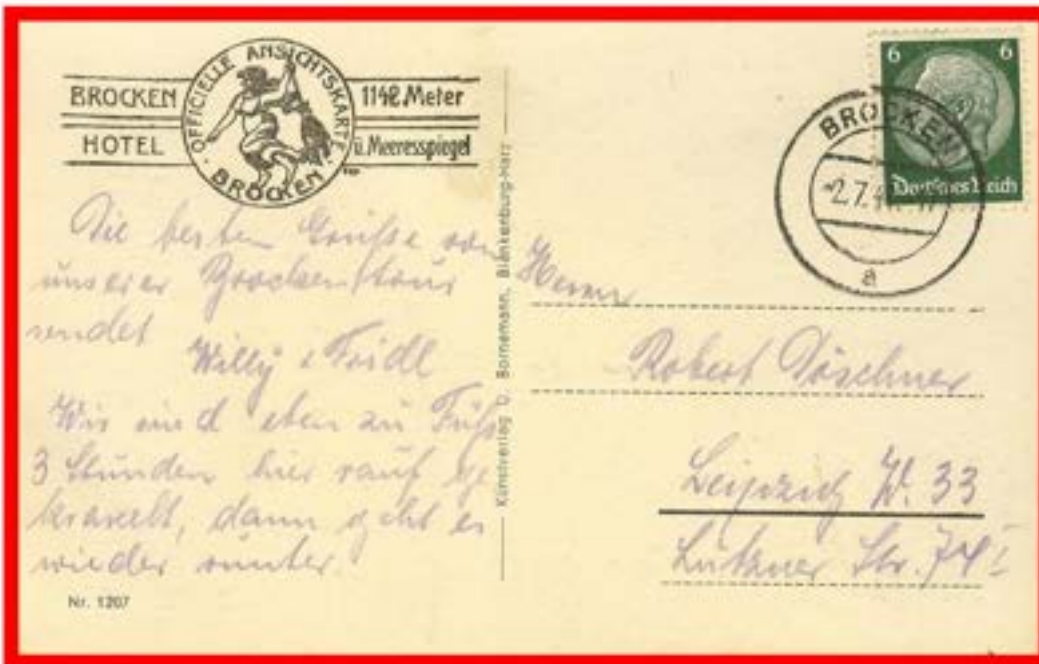 OFFICIELLE ANSICHTSKARTE BROCKEN
BROCKEN 1142 Meter
HOTEL ü. Meeresspiegel
Die besten Grüße von
unserer Brockentour
sendet
Willy & Fridl
Wir sind eben zu Fuß
3 Stunden hier rauf ge
kraxelt, dann geht es
wieder runter.
Nr. 1207
Kunstverlag O. Bornemann, Blankenburg-Harz
6 6
Deutsches Reich
BROCKEN
2.7.
a
Herrn
Robert Döschner
Leipzig W. 33
Lützner Str. 74 I